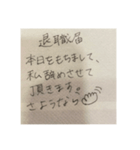 退職届
本日をもちまして、
私辞めさせて
頂きます。
さようなら